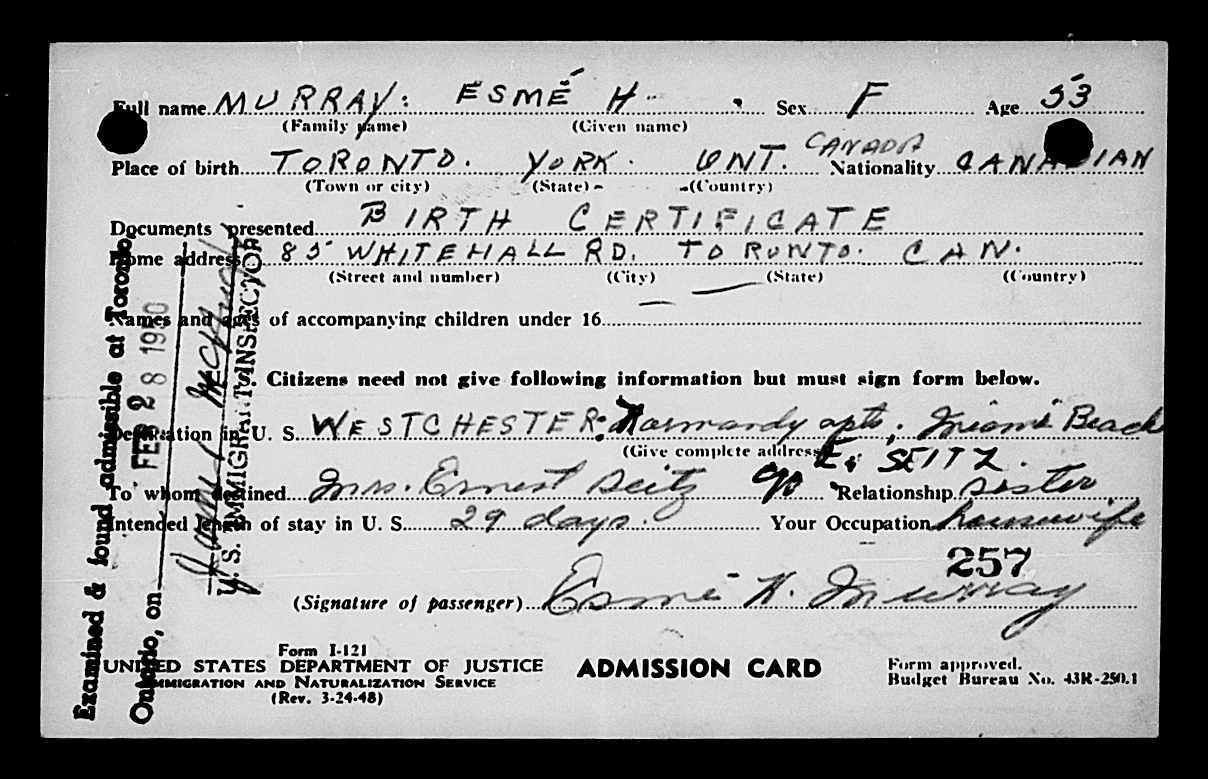 Full name MURRAY: ESMÉ H. Sex F Age 53
(Family name) (Given name)
Place of birth TORONTO. YORK. ONT. CANADA Nationality CANADIAN
(Town or city) (State) (Country)
Documents presented BIRTH CERTIFICATE
Home address 85 WHITEHALL RD. TORONTO. CAN.
(Street and number) (City) (State) (Country)
Names and ages of accompanying children under 16 —
U. S. Citizens need not give following information but must sign form below.
Destination in U. S. WESTCHESTER: Normandy apts, Miami Beach
(Give complete address) E. SEITZ.
To whom destined Mrs. Ernest Seitz c/o Relationship Sister
Intended length of stay in U. S. 29 days. Your Occupation housewife
257
(Signature of passenger) Esmé H. Murray
Form I-121
UNITED STATES DEPARTMENT OF JUSTICE
IMMIGRATION AND NATURALIZATION SERVICE
(Rev. 3-24-48)
ADMISSION CARD
Form approved.
Budget Bureau No. 43R-250.1
Examined & found admissible at Toronto
Ontario, on FEB 28 1950
James
U. S. IMMIGRANT INSPECTOR